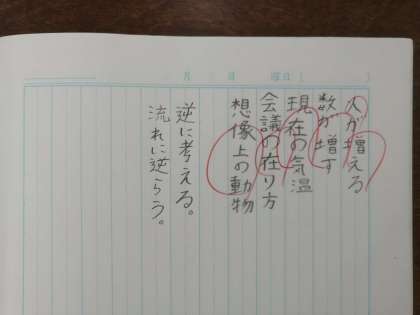 月 日 曜日
人が増える
数が増す
現在の気温
会議の在り方
想像上の動物
逆に考える。
流れに逆らう。